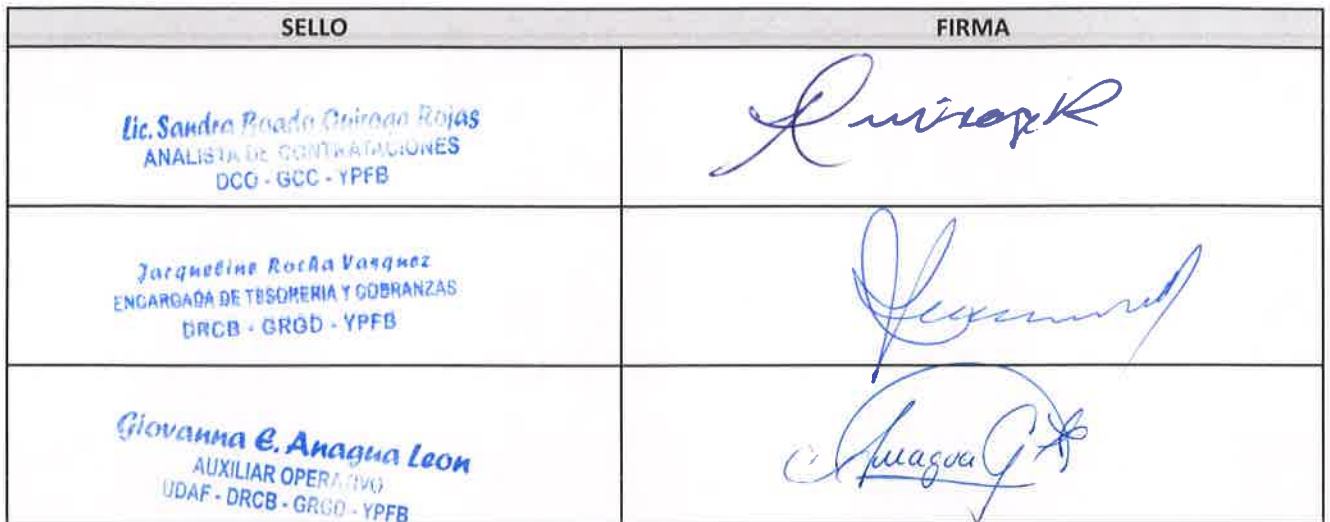 SELLO
FIRMA
Lic. Sandra Quiroga Rojas
ANALISTA DE CONTRATACIONES
DCO - GCC - YPFB
QuirogaR
Jacqueline Rocha Vasquez
ENCARGADA DE TESORERIA Y COBRANZAS
DRCB - GRGD - YPFB
Giovanna E. Anagua Leon
AUXILIAR OPERATIVO
UDAF - DRCB - GRGD - YPFB
Anagua G